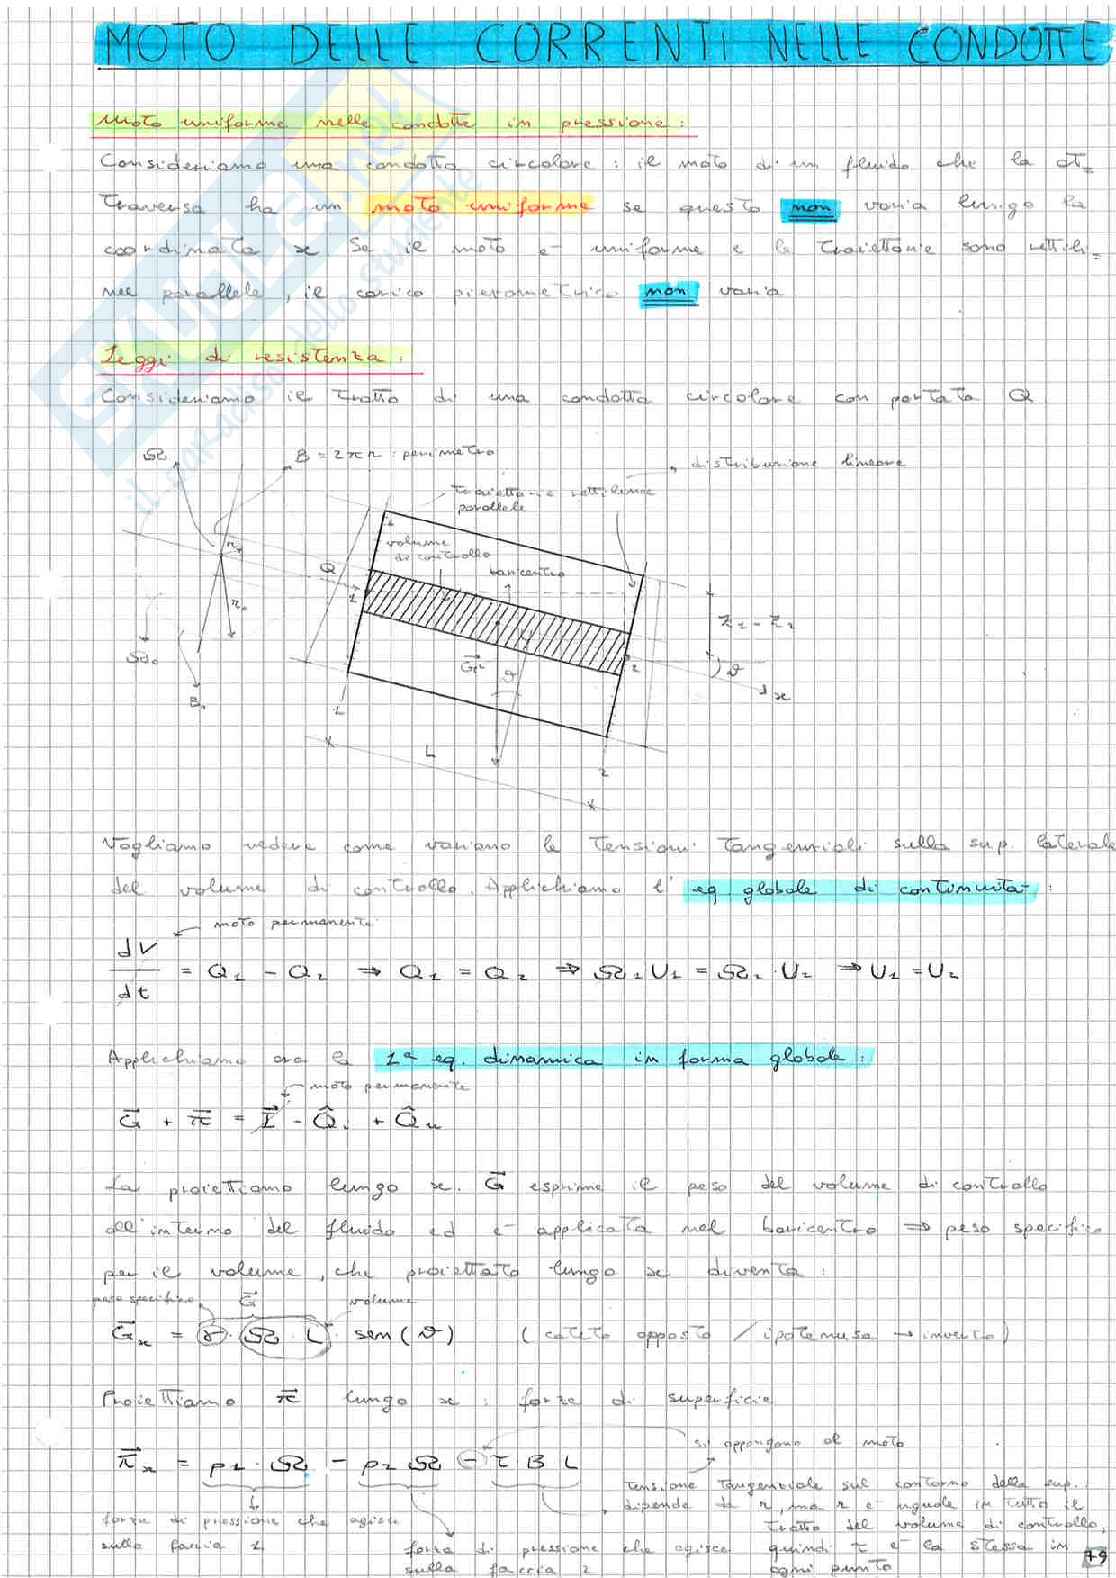 MOTO DELLE CORRENTI NELLE CONDOTTE
Moto uniforme nelle condotte in pressione:
Consideriamo una condotta circolare: il moto di un fluido che la at=
traversa ha un moto uniforme se questo non varia lungo la
coordinata x. Se il moto è uniforme e le traiettorie sono rettili=
nee parallele, il carico piezometrico non varia
Leggi di resistenza:
Consideriamo il tratto di una condotta circolare con portata Q
Ω
B = 2πr: perimetro
distribuzione lineare
traiettorie rettilinee
parallele
volume
di controllo
baricentro
Q
1
z1 - z2
G
ϑ
2
ϑ
x
L
2
Vogliamo vedere come variano le tensioni tangenziali sulla sup. laterale
del volume di controllo. Applichiamo l'eq. globale di continuità:
moto permanente
dV/dt = Q1 - Q2 ⇒ Q1 = Q2 ⇒ Ω1 U1 = Ω2 · U2 ⇒ U1 = U2
Applichiamo ora la 1ª eq. dinamica in forma globale:
moto permanente
G + π = I - Qi + Qu
La proiettiamo lungo x. G esprime il peso del volume di controllo
all'interno del fluido ed è applicata nel baricentro ⇒ peso specifico
per il volume, che proiettato lungo x diventa:
peso specifico G volume
Gx = γ · Ω · L · sen(ϑ) (cateto opposto / ipotenusa → inverso)
Proiettiamo π lungo x: forze di superficie
si oppongono al moto
πx = p1 · Ω - p2 Ω - τ B L
tensione tangenziale sul contorno della sup.
dipende da r, ma r è uguale in tutto il
tratto del volume di controllo,
quindi τ è la stessa in
ogni punto
forza di pressione che agisce
sulla faccia 1
forza di pressione che agisce
sulla faccia 2
79